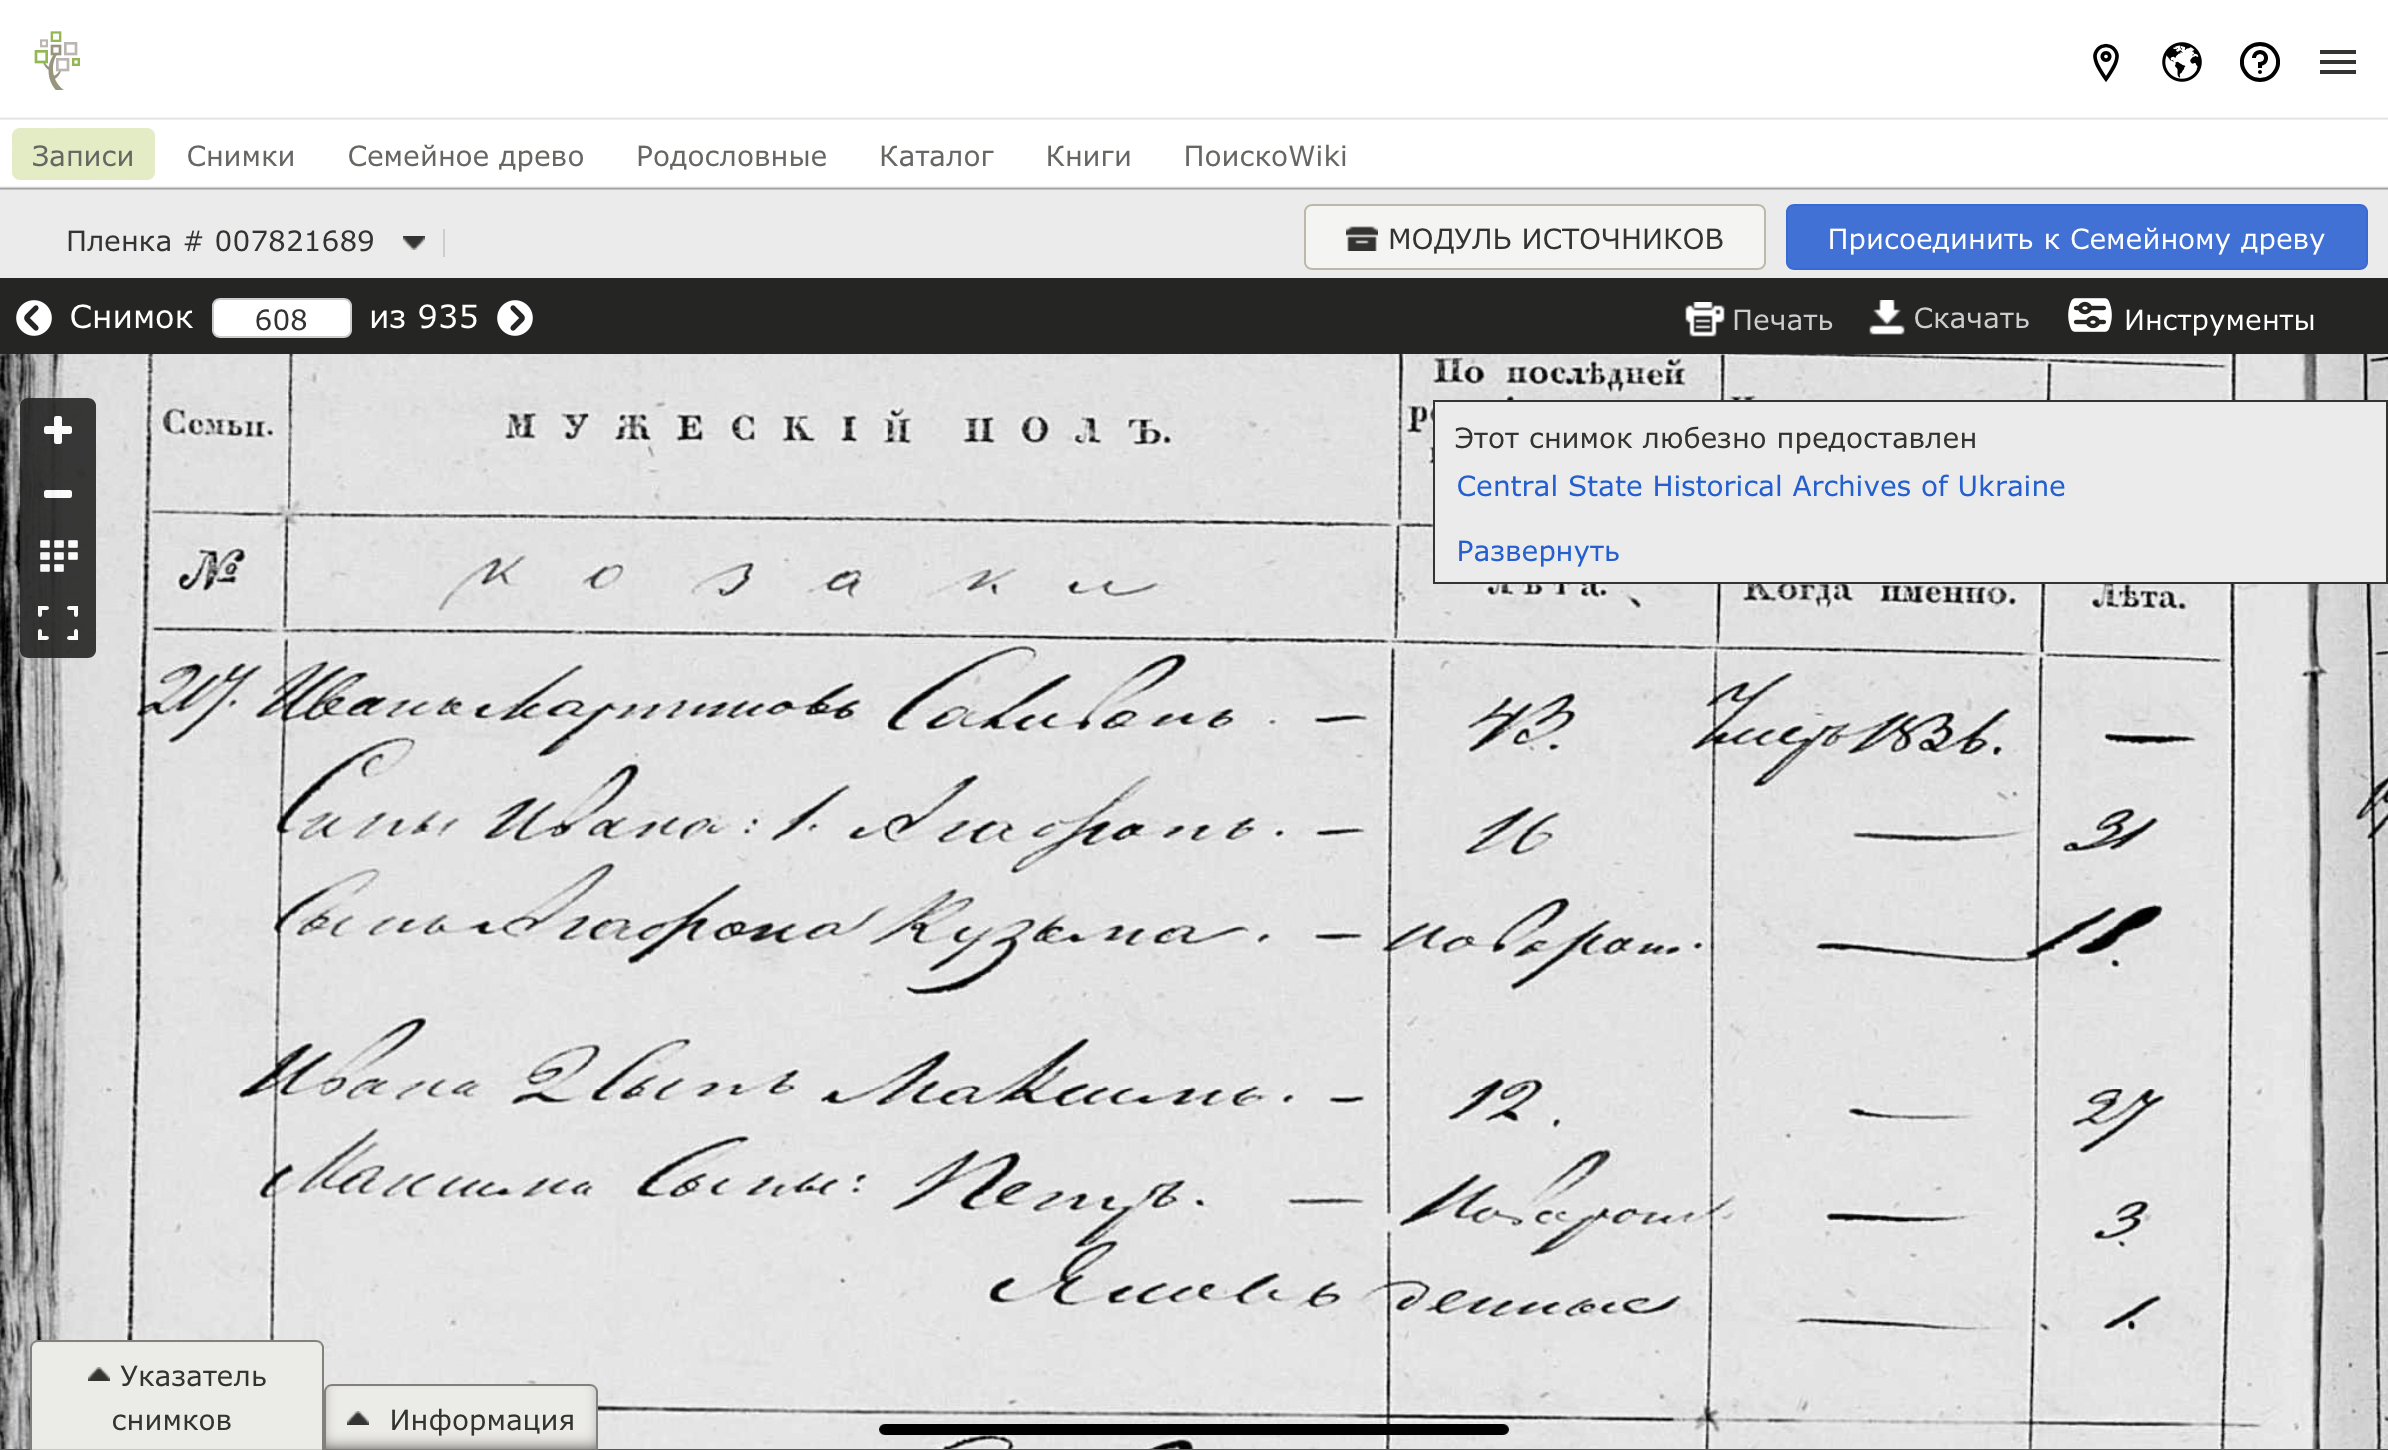 Записи Снимки Семейное древо Родословные Каталог Книги ПоискоWiki
Пленка # 007821689
МОДУЛЬ ИСТОЧНИКОВ
Присоединить к Семейному древу
Снимок 608 из 935
Печать Скачать Инструменты
По послѣдней
Семьи. МУЖЕСКІЙ ПОЛЪ.
Этот снимок любезно предоставлен
Central State Historical Archives of Ukraine
Развернуть
№ козаки
Лѣта. Когда именно. Лѣта.
Иванъ Мартиновъ — 43. Умеръ 1836. —
Сыны Ивана: 1. Агафонъ. — 16 — 31
Сынъ Агафона Кузьма. — новорож. —
Ивана 2 Сынъ Максимъ. — 12. — 27
Максима Сыны: Петръ. — Новорож — 3.
Яковъ — 1.
Указатель
снимков
Информация